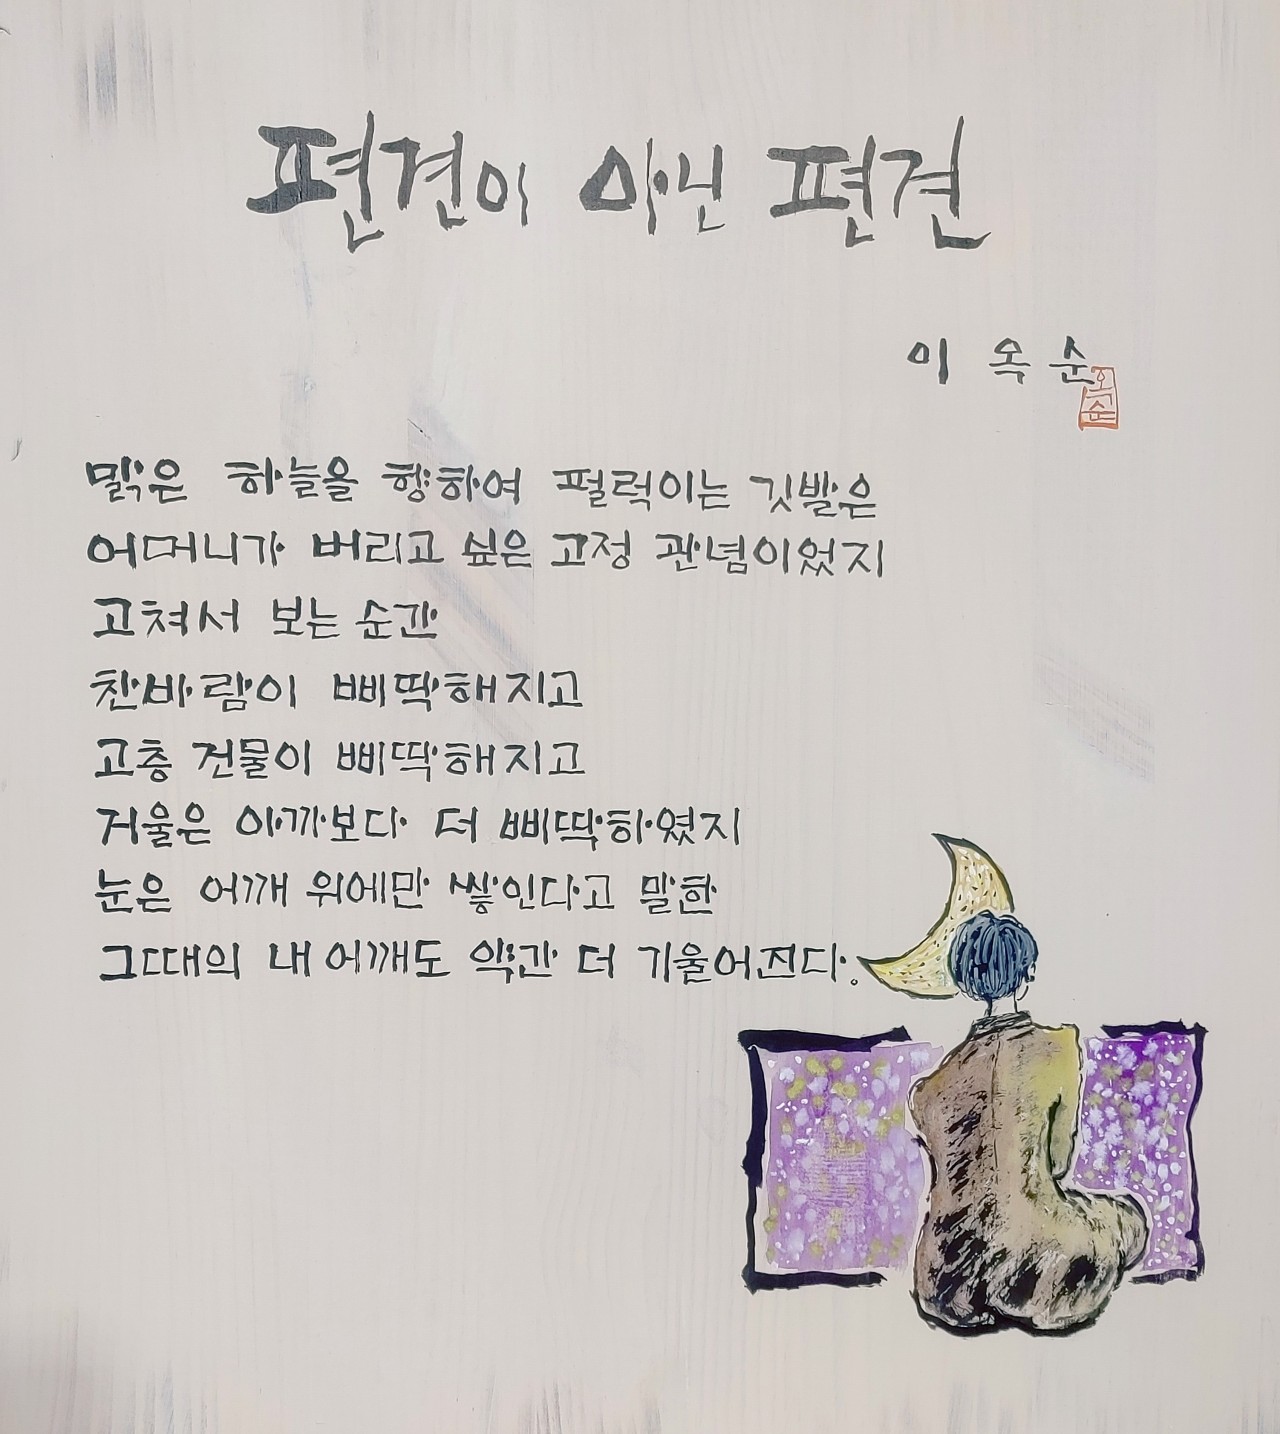 편견이 아닌 편견
이 옥 순
옥순
맑은 하늘을 향하여 펄럭이는 깃발은
어머니가 버리고 싶은 고정 관념이었지
고쳐서 보는 순간
찬바람이 삐딱해지고
고층 건물이 삐딱해지고
거울은 아까보다 더 삐딱하였지
눈은 어깨 위에만 쌓인다고 말한
그때의 내 어깨도 약간 더 기울어진다.